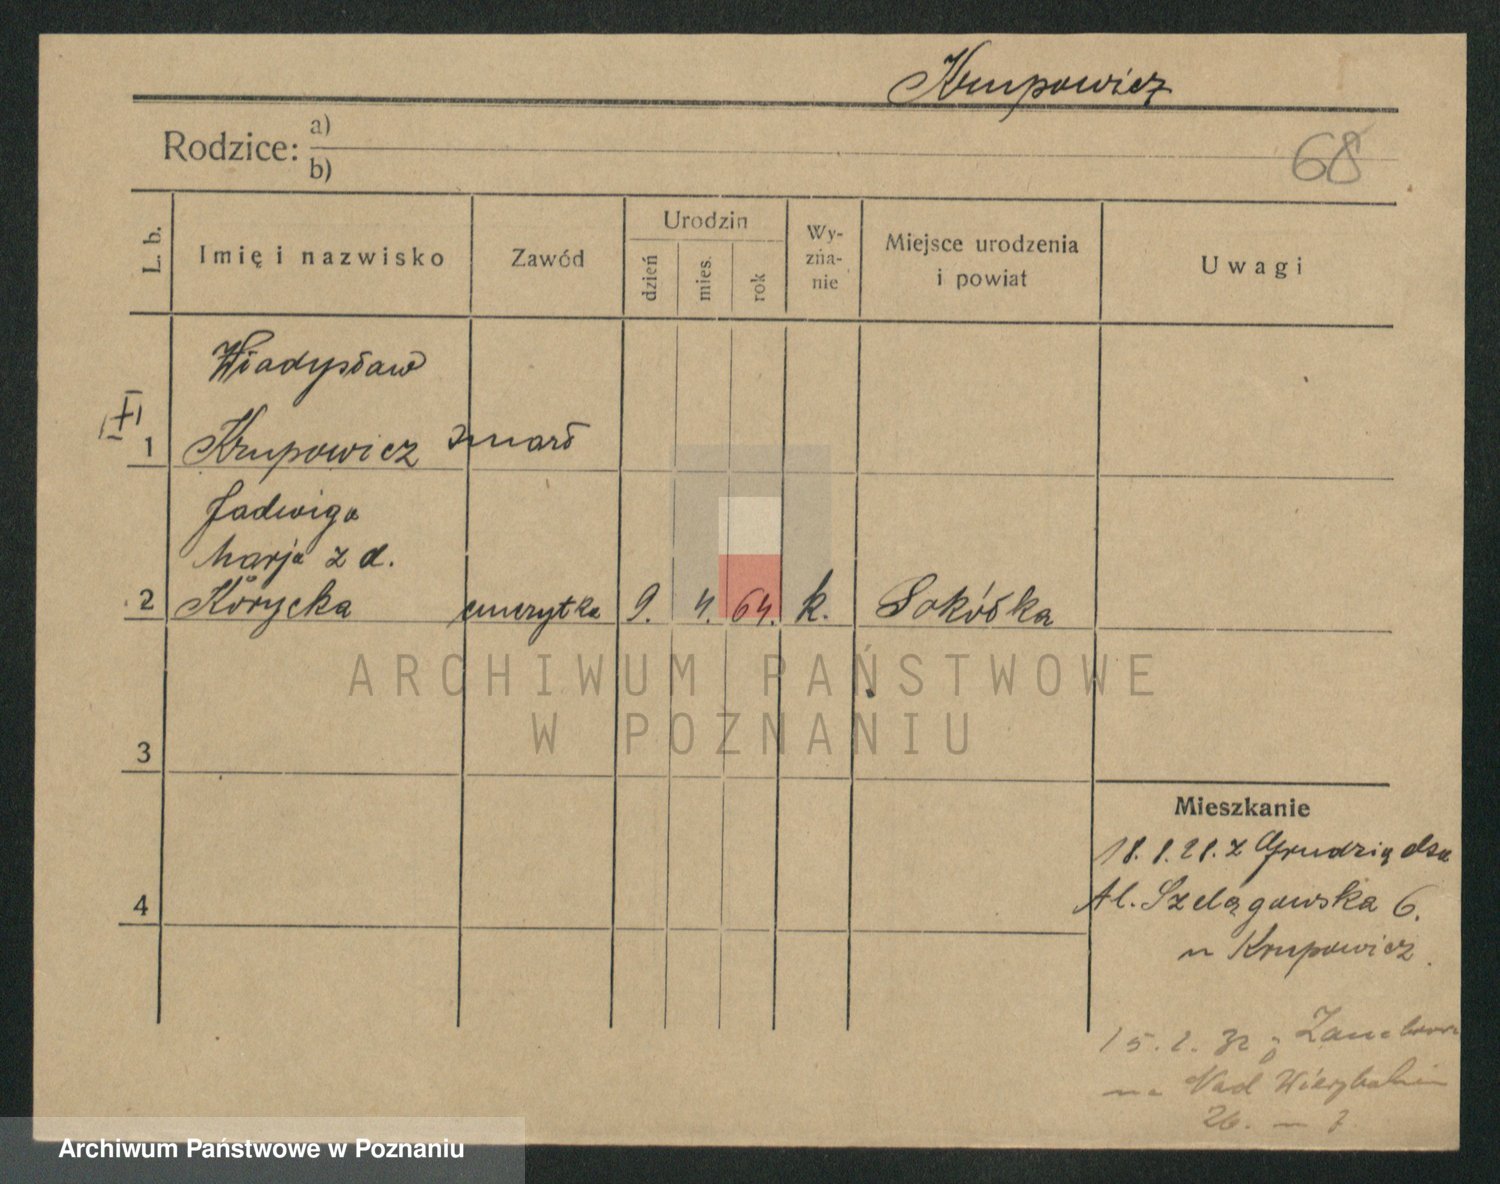 Krupowicz
Rodzice: a)
b)
68
L. b.
Imię i nazwisko
Zawód
Urodzin
dzień
mies.
rok
Wy-
zna-
nie
Miejsce urodzenia
i powiat
Uwagi
Władysław
1 Krupowicz zmarł
Jadwiga
Marja z d.
2 Korycka emerytka 9. 4. 64. k. Sokółka
ARCHIWUM PAŃSTWOWE
W POZNANIU
3
4
Mieszkanie
z Grudziądza
Al. Szelągowska 6.
u Krupowicz.
15. 2. 32
na Nad Wierzbakiem
26.
Archiwum Państwowe w Poznaniu